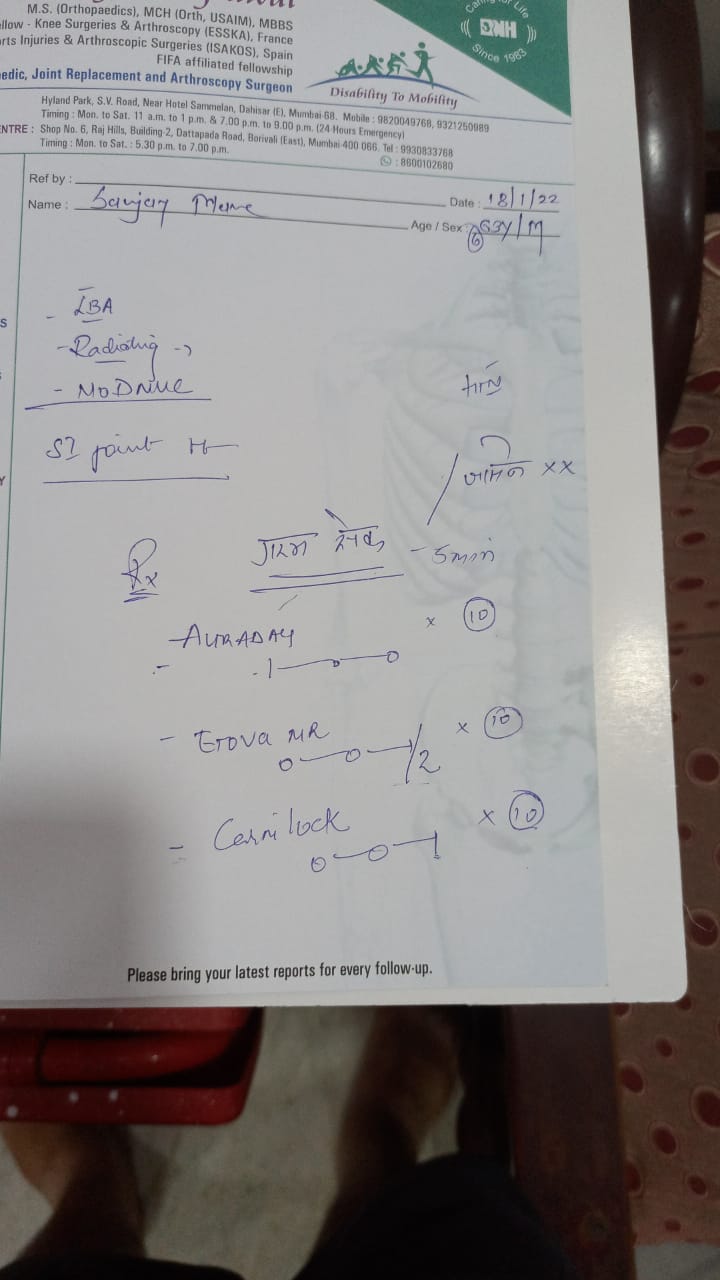 M.S. (Orthopaedics), MCH (Orth, USAIM), MBBS
llow - Knee Surgeries & Arthroscopy (ESSKA), France
rts Injuries & Arthroscopic Surgeries (ISAKOS), Spain
FIFA affiliated fellowship
edic, Joint Replacement and Arthroscopy Surgeon
Life
DNH
Since 1983
Disability To Mobility
Hyland Park, S.V. Road, Near Hotel Sammelan, Dahisar (E), Mumbai-68. Mobile : 9820049768, 9321250989
Timing : Mon. to Sat. 11 a.m. to 1 p.m. & 7.00 p.m. to 9.00 p.m. (24 Hours Emergency)
ENTRE : Shop No. 6, Raj Hills, Building-2, Dattapada Road, Borivali (East), Mumbai 400 066. Tel : 9930833768
Timing : Mon. to Sat. : 5.30 p.m. to 7.00 p.m.
: 8600102680
Ref by :
Date : 18/1/22
Name : Sanjay
Age / Sex : 63Y/M
- LBA
- Radiating →
- No DNVC
SI joint
Rx
गरम सेक
xx
x 10
1-0-0
- Etova MR x 10
0-0-1/2
- Carnilock x 10
0-0-1
Please bring your latest reports for every follow-up.